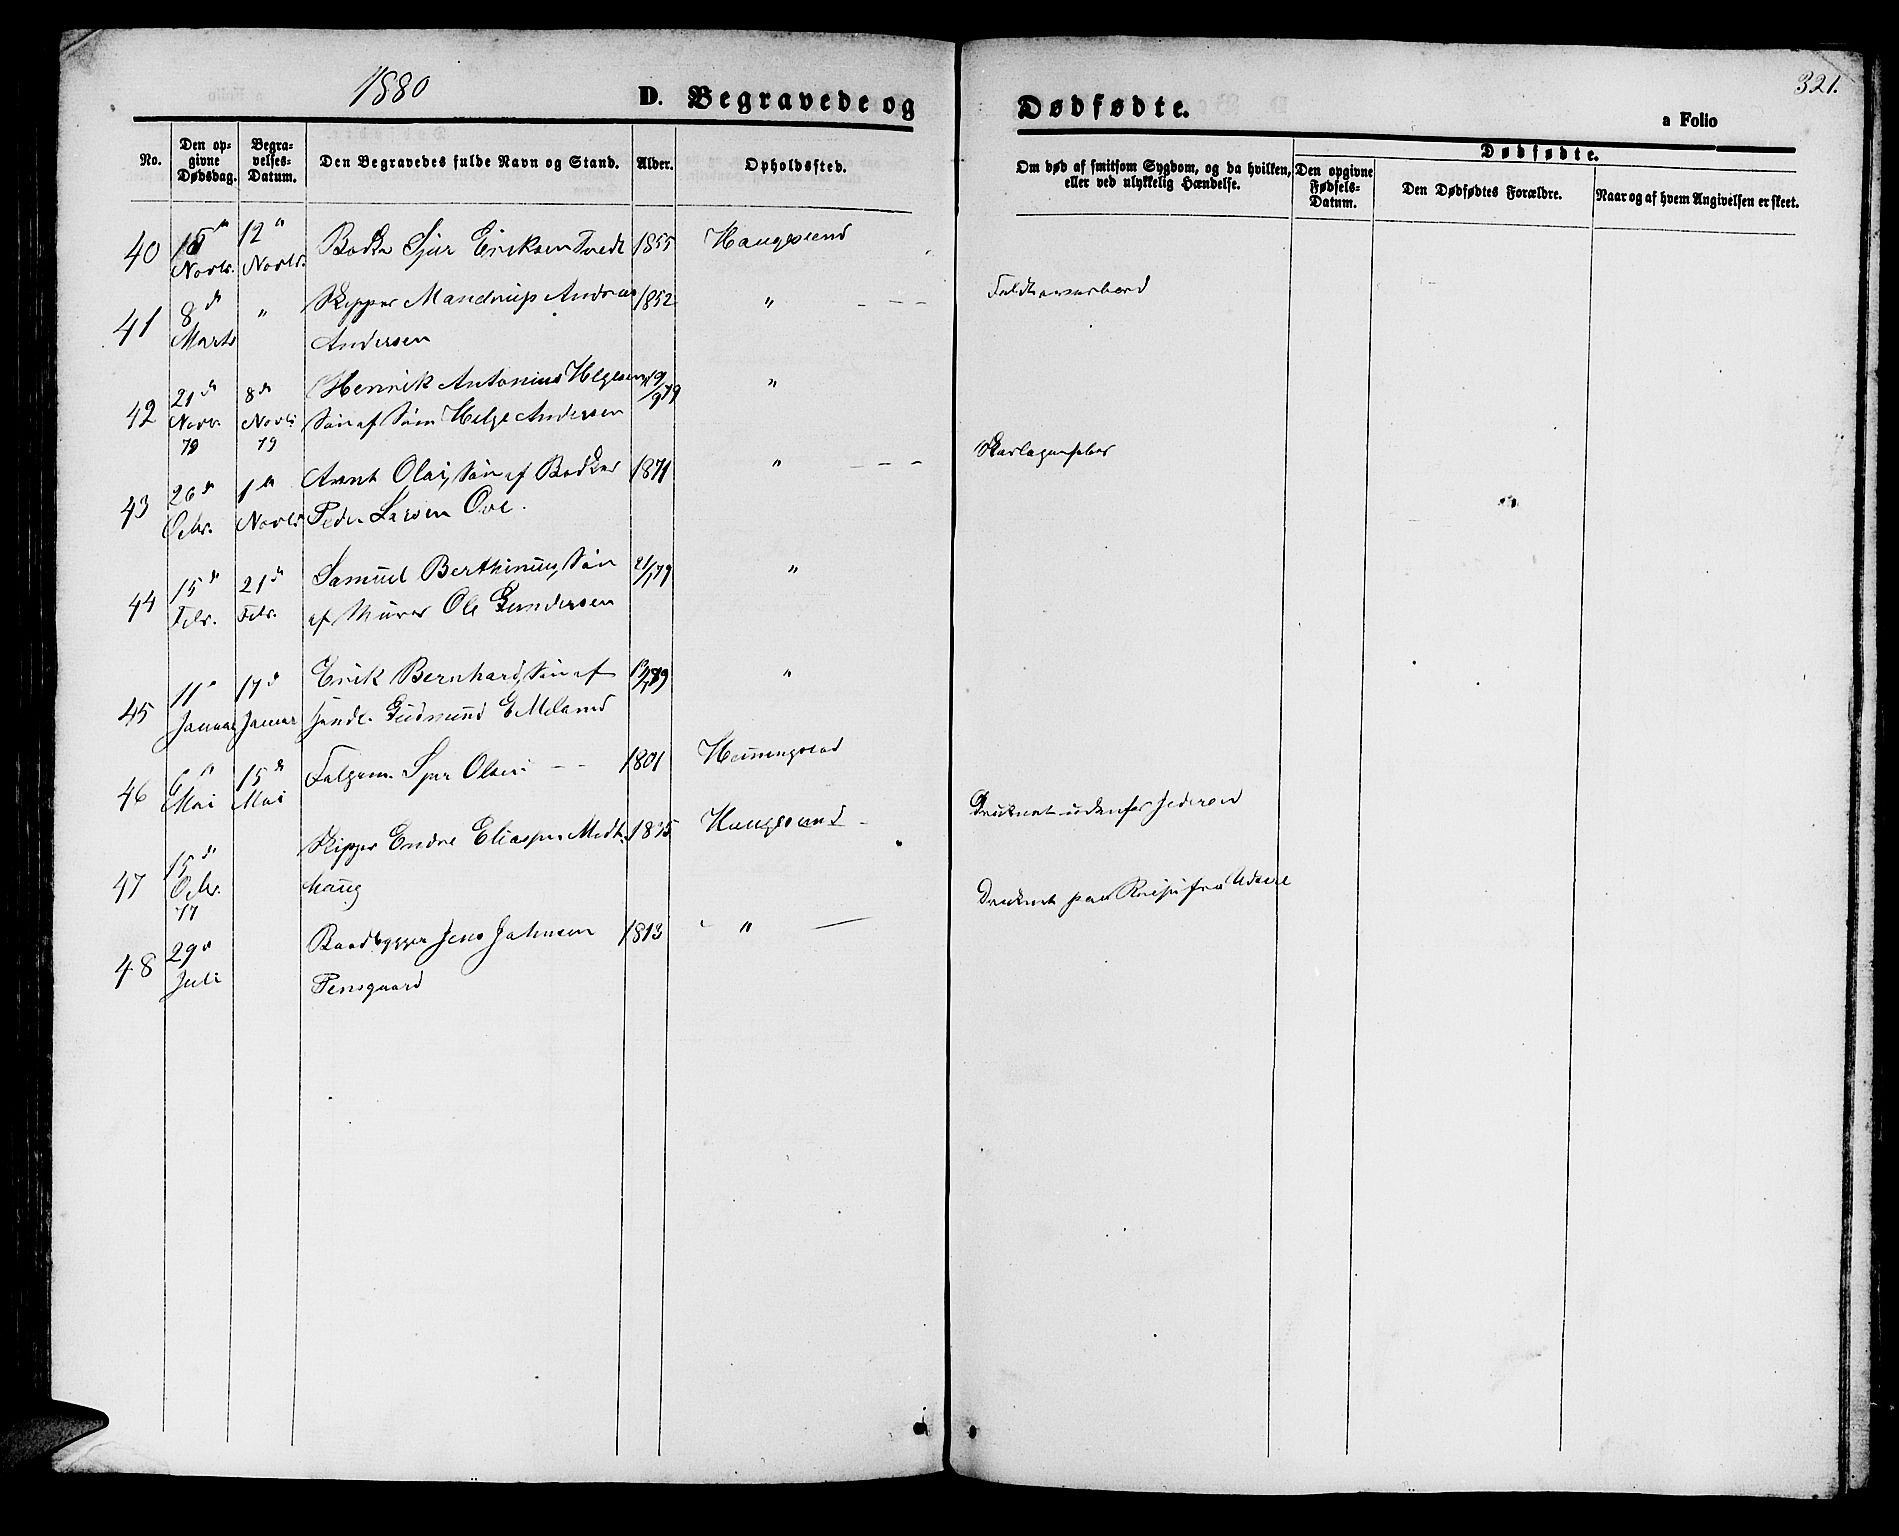 1880
D. Begravede og
Dødfødte.
321.
a Folio
No.
Den op-
givne
Dødsdag.
Begra-
velses-
Datum.
Den Begravedes fulde Navn og Stand.
Alder.
Opholdssted.
Om død af smitsom Sygdom, og da hvilken,
eller ved ulykkelig Hændelse.
Dødfødte.
Den opgivne
Fødsels-
Datum.
Den Dødfødtes Forældre.
Naar og af hvem Angivelsen er skeet.
40
Novbr.
12
Novbr.
Bødker Sjur Eriksen Tvedt
1855
Haugesund
41
8de
Marts
"
Skipper Mandrup Andreas
Andersen
1852
"
Faldt overbord
42
21de
Novbr.
79
8de
Novbr
79
Henrik Antonius Helgesen
Søn af Søm Helge Andersen
"
43
26de
Octbr.
1ste
Novbr
Arnt Olai, Søn af Bødker
Peder Larsen Ove.
1871
"
Skarlagensfeber
44
15de
Febr.
21de
Febr.
Samuel Berthinius, Søn
af Murer Ole Gundersen
21/1 79
"
45
11te
Januar
17de
Januar
Erik Bernhard, Søn af
Handl. Gudmund E Meland
"
46
6te
Mai
15de
Mai
Sjur Olsen
1801
47
15de
Octbr.
77
Skipper Endre Eliassen Medt-
haug
1835
Haugesund
Druknet udenfor Jæderen
48
29de
Juli
Baadbygger Jens Johnsen
Tensgaard
1813
"
Druknet paa Reise fra Udsire